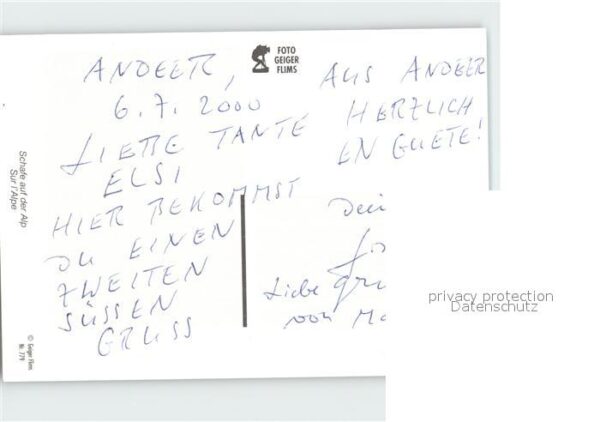 ANDEER,
6.7.2000
LIEBE TANTE
ELSI
HIER BEKOMMST
DU EINEN
ZWEITEN
SÜSSEN
GRUSS
AUS ANDEER
HERZLICH
EN GUETE!
Liebe
von
FOTO
GEIGER
FLIMS
Schafe auf der Alp
Sur l'Alpe
© Geiger Flims
Nr. 779
privacy protection
Datenschutz